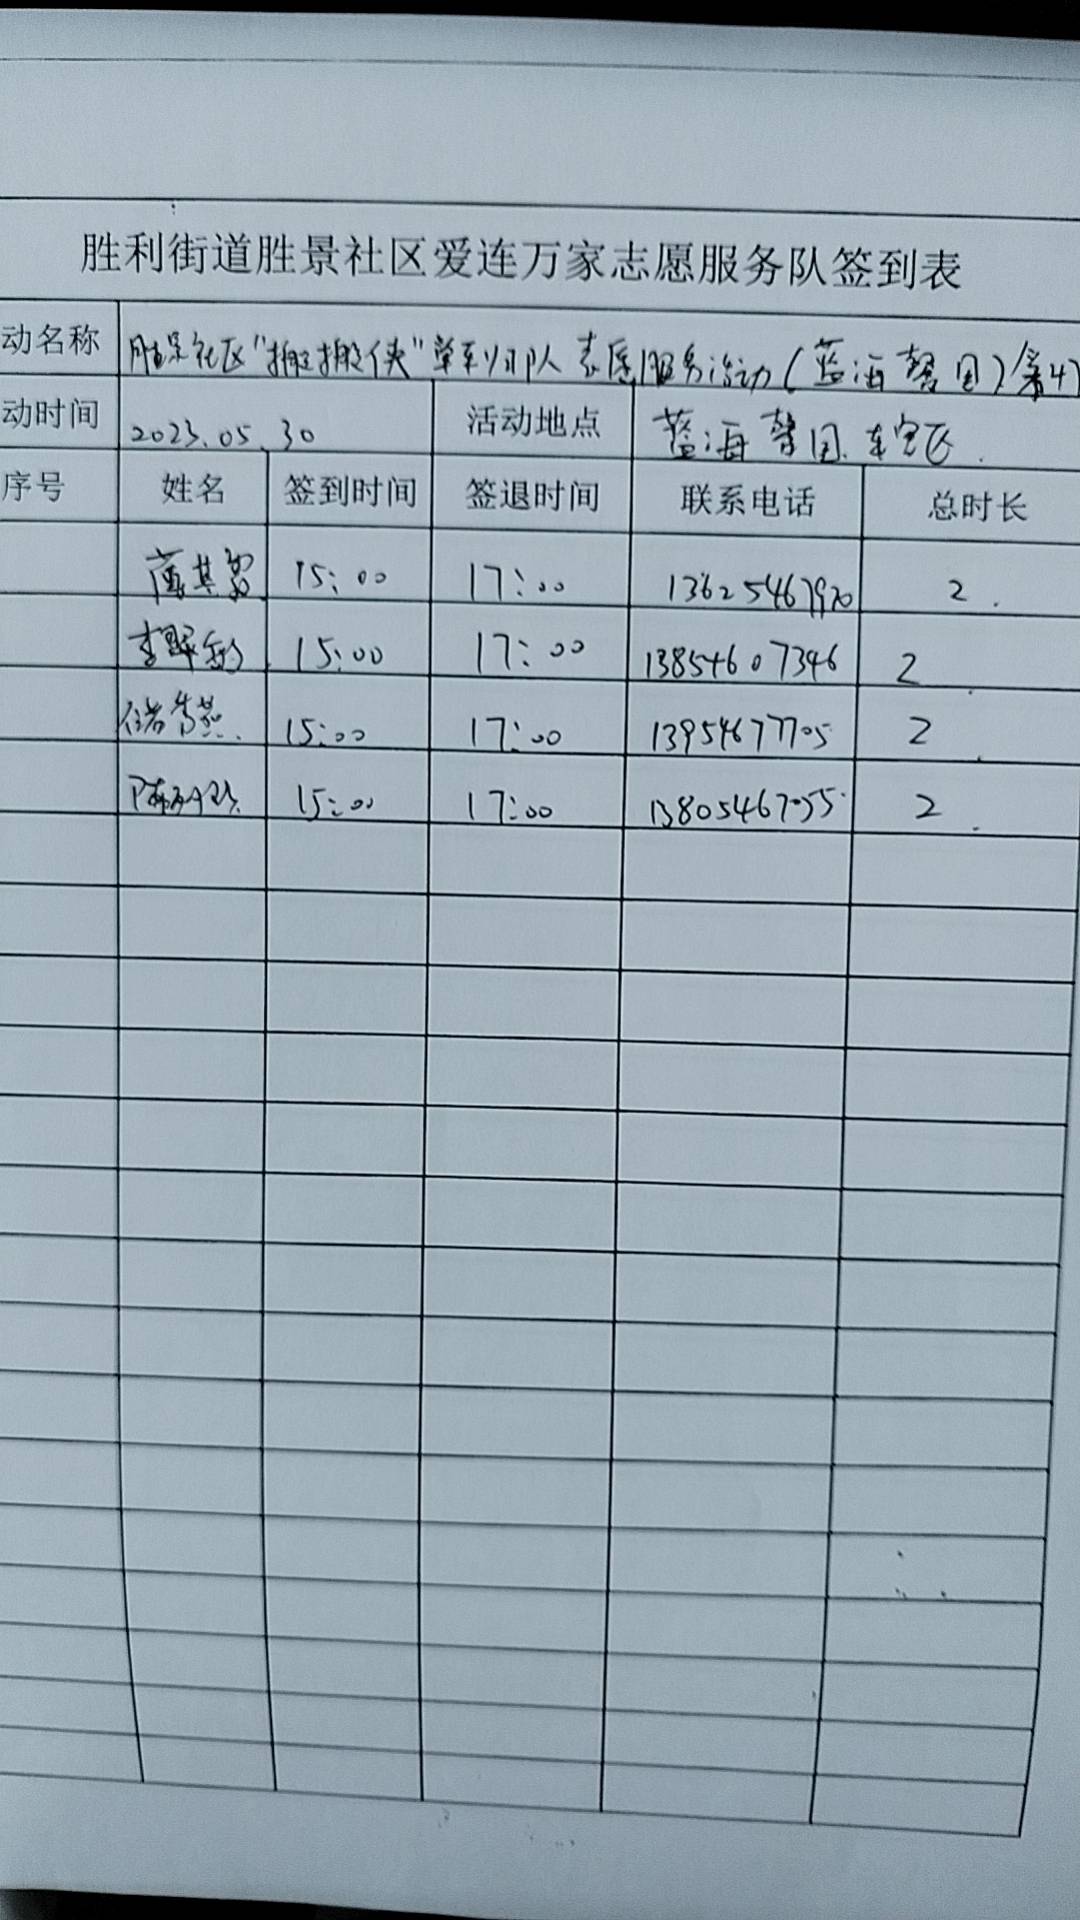 胜利街道胜景社区爱连万家志愿服务队签到表
动名称 胜景社区"搬搬侠"单车归队志愿服务活动(蓝海馨园)第4
动时间 2023.05.30 活动地点 蓝海馨园.车空区.
序号 姓名 签到时间 签退时间 联系电话 总时长
15:00 17:00 13625467970 2.
李翠 15:00 17:00 13854607346 2
储秀燕. 15:00 17:00 13954677705 2
陈 15:00 17:00 13805467055 2